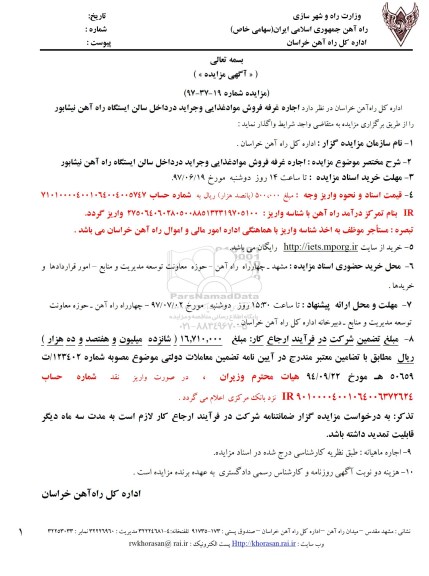 وزارت راه و شهر سازی
راه آهن جمهوری اسلامی ایران(سهامی خاص)
اداره کل راه آهن خراسان
تاریخ:
شماره :
پیوست :
بسمه تعالی
( « آگهی مزایده » )
(مزایده شماره ۱۹-۳۷-۹۷)
اداره کل راه‌آهن خراسان در نظر دارد اجاره غرفه فروش موادغذایی وجراید درداخل سالن ایستگاه راه آهن نیشابور
را از طریق برگزاری مزایده به متقاضی واجد شرایط واگذار نماید :
۱- نام سازمان مزایده گزار : اداره کل راه آهن خراسان .
۲- شرح مختصر موضوع مزایده : اجاره غرفه فروش موادغذایی وجراید درداخل سالن ایستگاه راه آهن نیشابور
۳- مهلت خرید اسناد مزایده : تا ساعت ۱۴ روز دوشنبه مورخ ۹۷/۰۶/۱۹.
۴- قیمت اسناد و نحوه واریز وجه : مبلغ ۵۰۰،۰۰۰ (پانصد هزار) ریال به شماره حساب ۷۱۰۱۰۰۰۰۴۰۰۱۰۶۴۰۰۴۰۰۵۷۴۷
IR بنام تمرکز درآمد راه آهن با شناسه واریز : ۲۷۵۰۶۴۰۶۰۲۸۰۵۰۰۸۸۵۱۳۳۳۱۹۷۰۵۱۰۰ واریز گردد.
تبصره : مستأجر موظف به اخذ شناسه واریز با هماهنگی اداره امور مالی و اموال راه آهن خراسان می باشد .
۵- خرید از سایت http://iets.mporg.ir رایگان می باشد .
۶- محل خرید حضوری اسناد مزایده : مشهد ـ چهارراه راه آهن - حوزه معاونت توسعه مدیریت و منابع - امور قراردادها و
خریدها .
۷- مهلت و محل ارائه پیشنهاد : تا ساعت ۱۵:۳۰ روز دوشنبه مورخ ۹۷/۰۷/۰۲ - چهارراه راه آهن ـ حوزه معاونت
توسعه مدیریت و منابع ـ دبیرخانه اداره کل راه آهن خراسان
۸- مبلغ تضمین شرکت در فرآیند ارجاع کار: مبلغ ۱۶,۷۱۰,۰۰۰ ( شانزده میلیون و هفتصد و ده هزار )
ریال مطابق با تضامین معتبر مندرج در آیین نامه تضمین معاملات دولتی موضوع مصوبه شماره ۱۲۳۴۰۲/ت
۵۰۶۵۹ هـ مورخ ۹۴/۰۹/۲۲ هیات محترم وزیران ، در صورت واریز نقد شماره حساب
IR ۹۰۱۰۰۰۰۴۰۰۱۰۶۴۰۰۶۳۷۲۶۲۴ نزد بانک مرکزی اعلام می گردد .
تذکر: به درخواست مزایده گزار ضمانتنامه شرکت در فرآیند ارجاع کار لازم است به مدت سه ماه دیگر
قابلیت تمدید داشته باشد.
۹- اجاره ماهیانه : طبق نظریه کارشناسی درج شده در اسناد مزایده.
۱۰- هزینه دو نوبت آگهی روزنامه و کارشناس رسمی دادگستری به عهده برنده مزایده است .
اداره کل راه‌آهن خراسان
نشانی : مشهد مقدس - میدان راه آهن - اداره کل راه آهن خراسان - صندوق پستی : ۱۷۳-۹۱۷۳۵ تلفنخانه:۴-۳۲۲۲۴۶۸۱ مدیریت : ۳۲۲۲۶۹۶۰ نمابر : ۳۲۲۵۳۰۳۳
وب سایت : Http://khorasan.rai.ir پست الکترونیک : rwkhorasan@rai.ir
۱
ParsNamadData
۰۲۱-۸۸۳۴۹۶۷۰